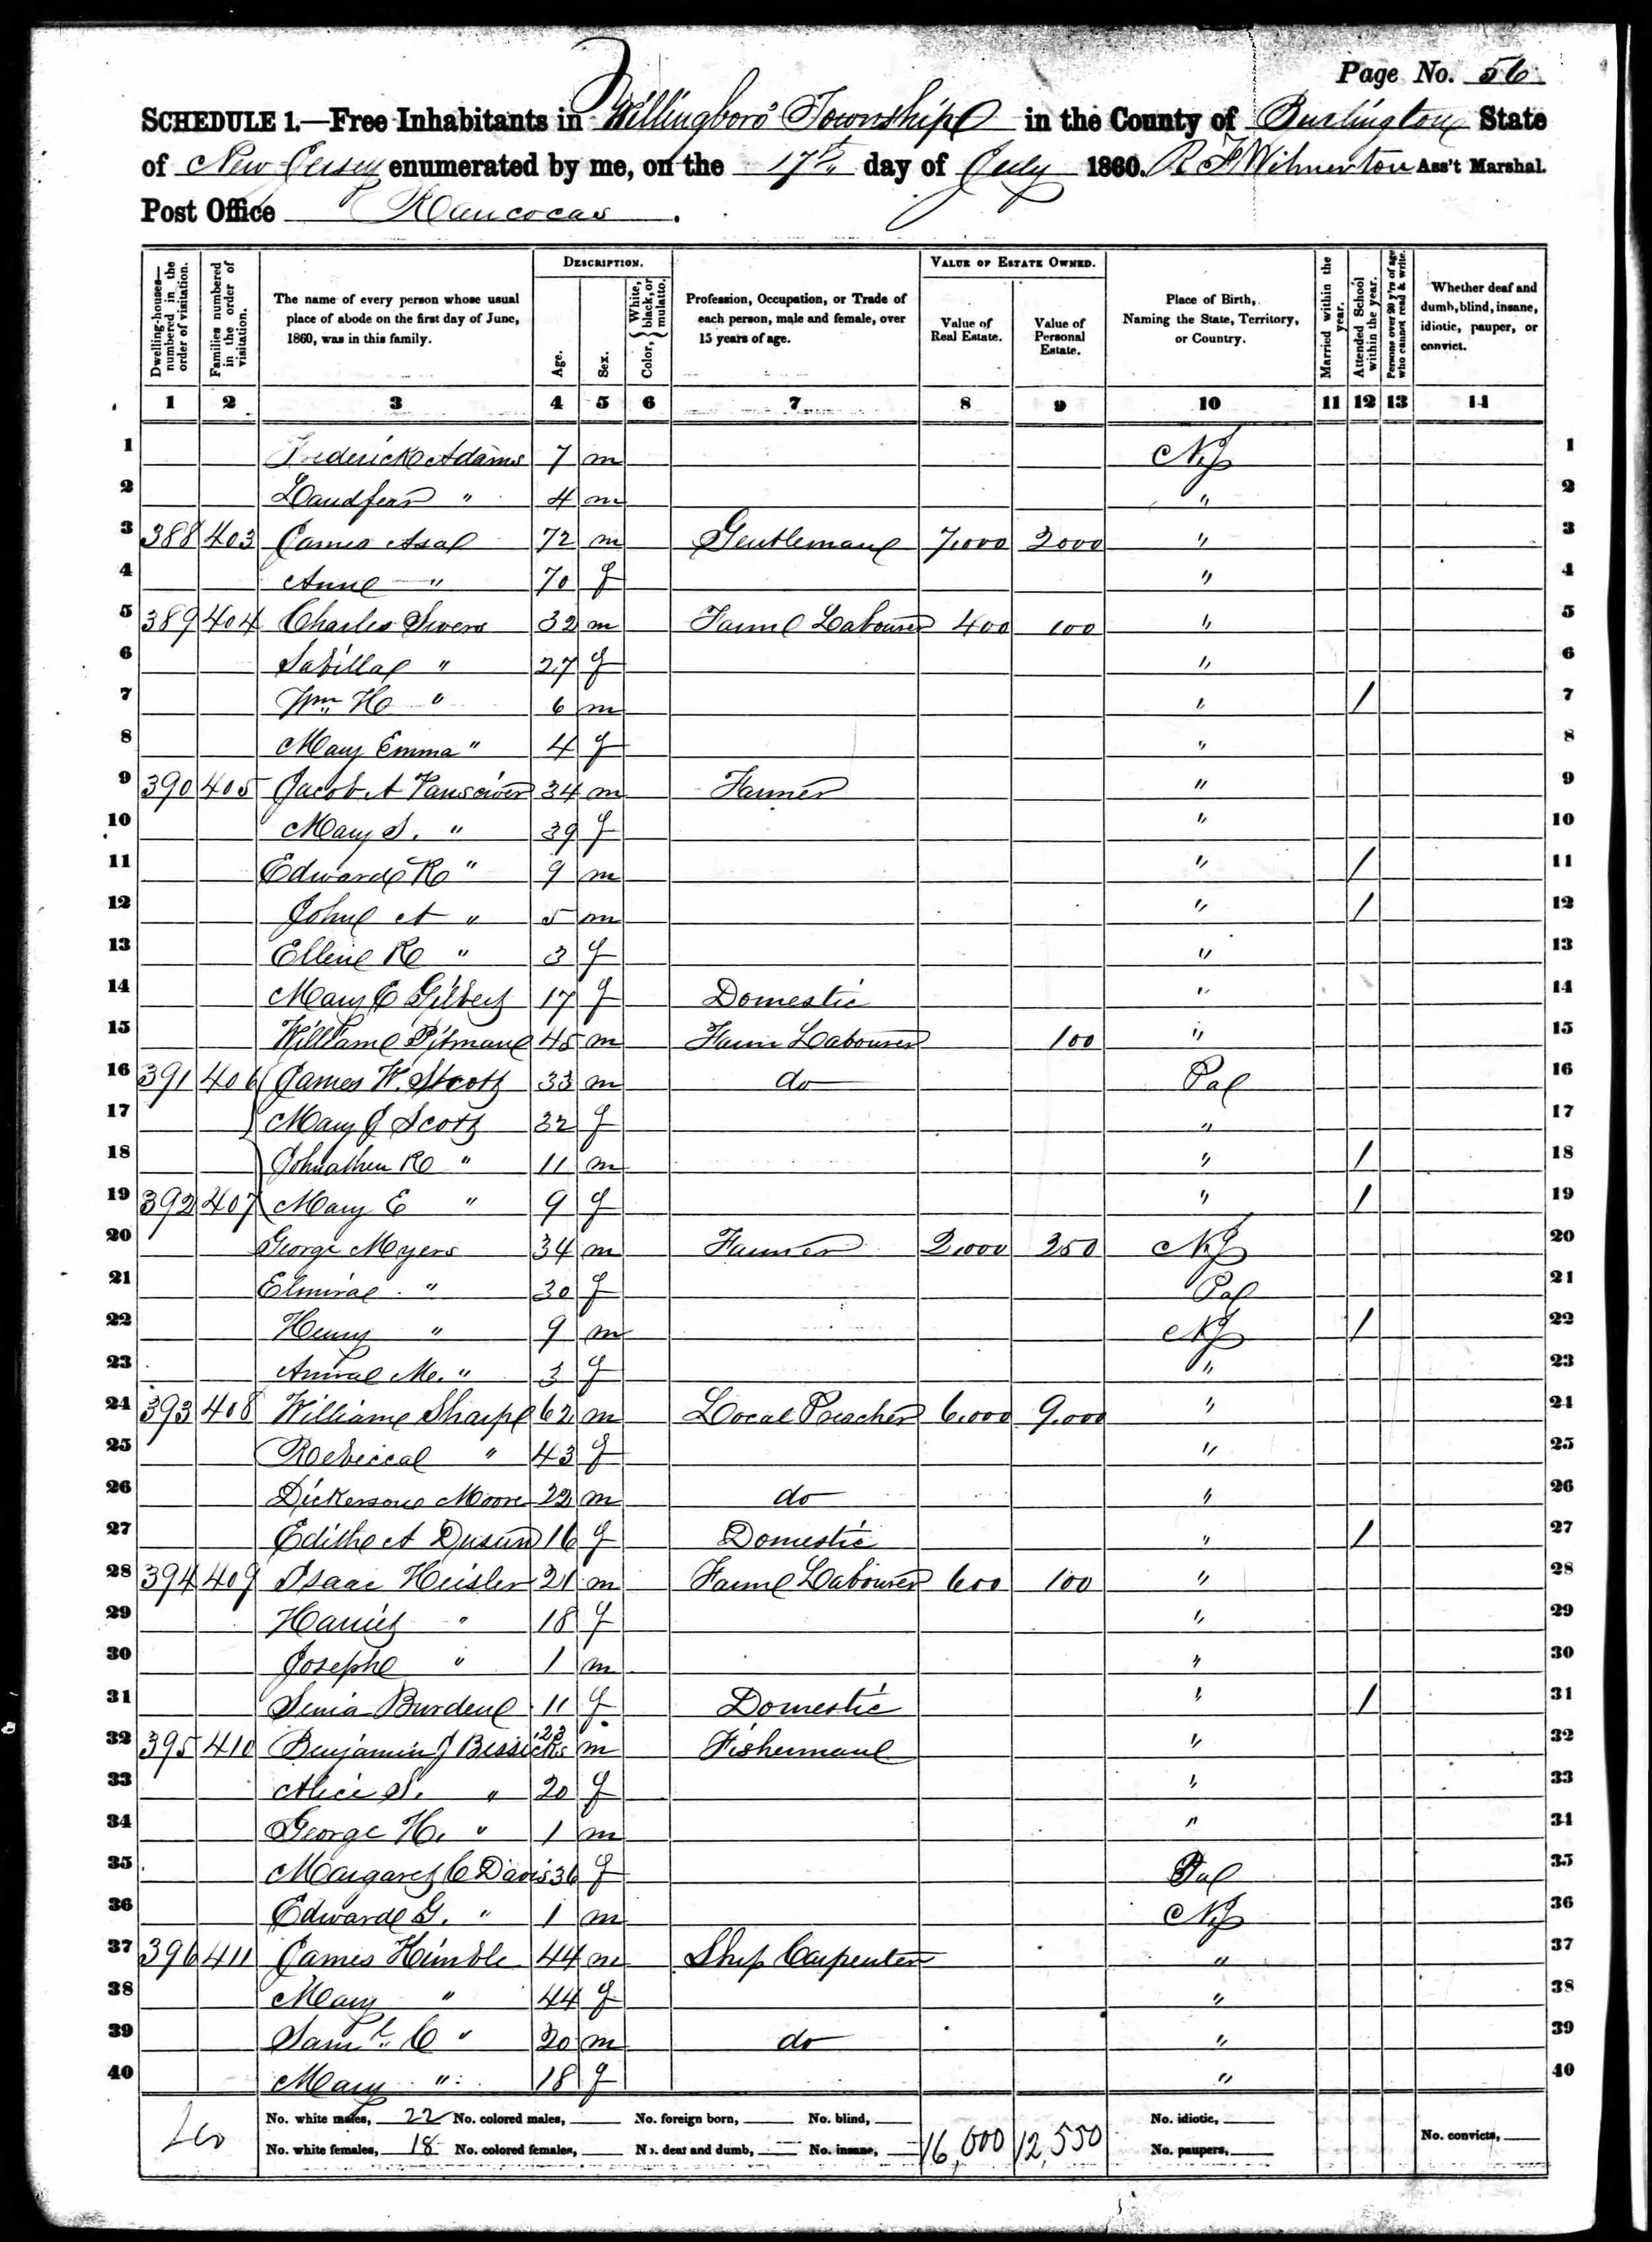 Page No. 56
SCHEDULE 1.—Free Inhabitants in Willingboro Township in the County of Burlington State
of New Jersey enumerated by me, on the 17th day of July 1860. R F Wilmerton Ass't Marshal.
Post Office Rancocas.
Dwelling-houses—numbered in the order of visitation.
Families numbered in the order of visitation.
The name of every person whose usual place of abode on the first day of June, 1860, was in this family.
DESCRIPTION.
Age.
Sex.
Color, { White, black, or mulatto.
Profession, Occupation, or Trade of each person, male and female, over 15 years of age.
VALUE OF ESTATE OWNED.
Value of Real Estate.
Value of Personal Estate.
Place of Birth, Naming the State, Territory, or Country.
Married within the year.
Attended School within the year.
Persons over 20 y'rs of age who cannot read & write.
Whether deaf and dumb, blind, insane, idiotic, pauper, or convict.
1 2 3 4 5 6 7 8 9 10 11 12 13 14
1 Frederick Adams 7 m NJ 1
2 " 4 m " 2
3 388 403 James Asal 72 m Gentleman 7,000 2000 " 3
4 Anne " 70 f " 4
5 389 404 Charles Sivers 32 m Farm Labourer 400 100 " 5
6 Sabilla " 27 f " 6
7 Wm H " 6 m " / 7
8 Mary Emma " 4 f " 8
9 390 405 Jacob A Vansciver 34 m Farmer " 9
10 Mary S. " 39 f " 10
11 Edward R " 9 m " / 11
12 John A " 5 m " / 12
13 Ellen R " 3 f " 13
14 Mary E Gilbert 17 f Domestic " 14
15 William Pitman 45 m Farm Labourer 100 " 15
16 391 406 James W. Scott 33 m do Pa 16
17 Mary J Scott 32 f " 17
18 Johnathen R " 11 m " / 18
19 392 407 Mary E " 9 f " / 19
20 George Myers 34 m Farmer 2,000 250 NJ 20
21 Elmira " 30 f Pa 21
22 Henry " 9 m NJ / 22
23 Anna M. " 3 f " 23
24 393 408 William Sharp 62 m Local Preacher 6,000 9,000 " 24
25 Rebecca " 43 f " 25
26 Dickerson Moore 22 m do " 26
27 Edith A 16 f Domestic " / 27
28 394 409 Isaac Heisler 21 m Farm Labourer 600 100 " 28
29 Harriet " 18 f " 29
30 Joseph " 1 m " 30
31 Burden 11 f Domestic " / 31
32 395 410 Benjamin J Bessicks 23 m Fisherman " 32
33 Alice S. " 20 f " 33
34 George H. " 1 m " 34
35 Margaret C Davis 36 f Pa 35
36 Edward G. " 1 m NJ 36
37 396 411 James Himble 44 m Ship Carpenter " 37
38 Mary " 44 f " 38
39 Saml. C " 20 m do " 39
40 Mary " 18 f " 40
No. white males, 22 No. colored males, No. foreign born, No. blind, No. idiotic,
No. white females, 18 No. colored females, No. deaf and dumb, No. insane, 16,000 12,550 No. paupers, No. convicts,